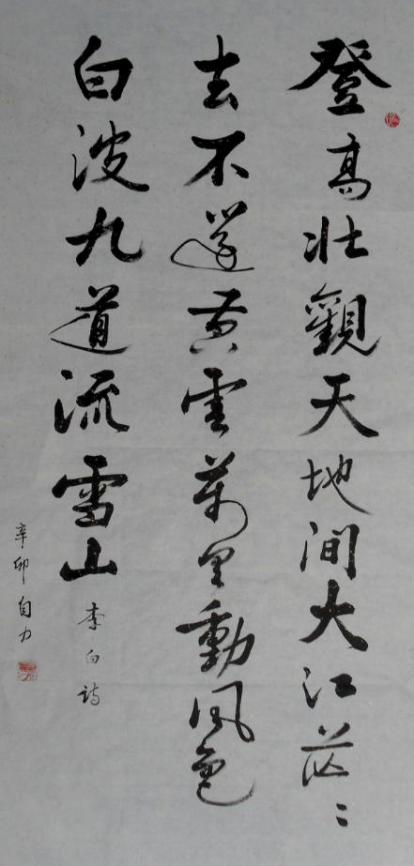 登高壮觀天地间大江茫〻
去不還黄雲萬里動風色
白波九道流雪山
李白詩
辛卯自力